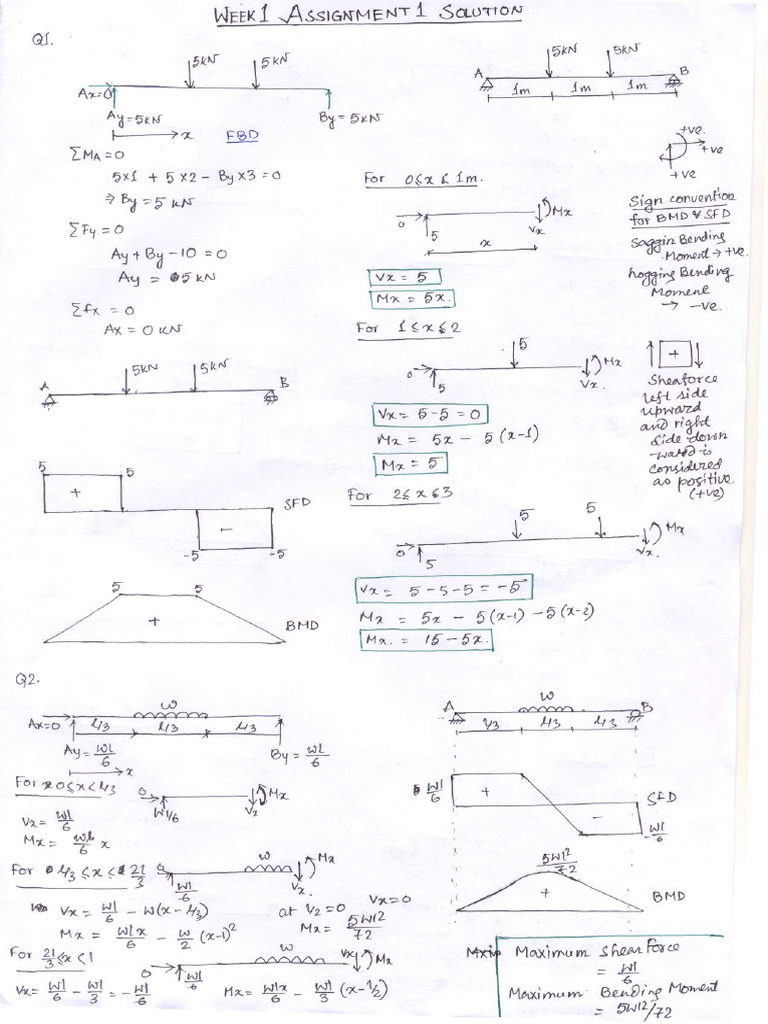 WEEK 1 ASSIGNMENT 1 SOLUTION
Q1.
5KN 5KN
Ax=0
Ay=5KN By=5KN
x FBD
5KN 5KN
A B
1m 1m 1m
ΣMA=0
5×1 + 5×2 - By×3 =0
⇒ By = 5 KN
ΣFy=0
Ay + By - 10 = 0
Ay = 5 KN
Σfx = 0
Ax = 0 KN
A 5KN 5KN B
5 5
+ SFD
-
-5 -5
5 5
+ BMD
For 0≤x≤1m.
0 5 Vx Mx
x
Vx = 5
Mx = 5x.
For 1≤x≤2
5
0 5 Vx. Mx
Vx = 5-5 = 0
Mx = 5x - 5(x-1)
Mx = 5
For 2≤x≤3
5 5
0 5 Vx. Mx
Vx = 5-5-5 = -5
Mx = 5x - 5(x-1) - 5(x-2)
Mx. = 15-5x.
+ve.
+ve
+ve
Sign convention
for BMD & SFD
Saggin Bending
Moment → +ve.
hogging Bending
Moment
→ -ve.
+
Sheaforce
left side
upward
and right
side down
-ward is
considered
as positive.
(+ve)
Q2.
w
Ax=0 l/3 l/3 l/3
Ay = wl/6 By = wl/6
x
For 0≤x<l/3
0 wl/6 Vx Mx
Vx = wl/6
Mx = wl/6 x
For l/3≤x≤2l/3
0 wl/6 w Vx Mx
Vx = wl/6 - w(x-l/3) at l/2=0 Vx=0
Mx = wlx/6 - w/2 (x-l)² Mx = 5wl²/72
For 2l/3≤x<l
0 wl/6 w Vx Mx
Vx = wl/6 - wl/3 = -wl/6 Mx = wlx/6 - wl/3 (x-l/2)
A w B
l/3 l/3 l/3
wl/6 + SFD
- -wl/6
5wl²/72
+ BMD
Maximum shear Force
= wl/6
Maximum Bending Moment
= 5wl²/72